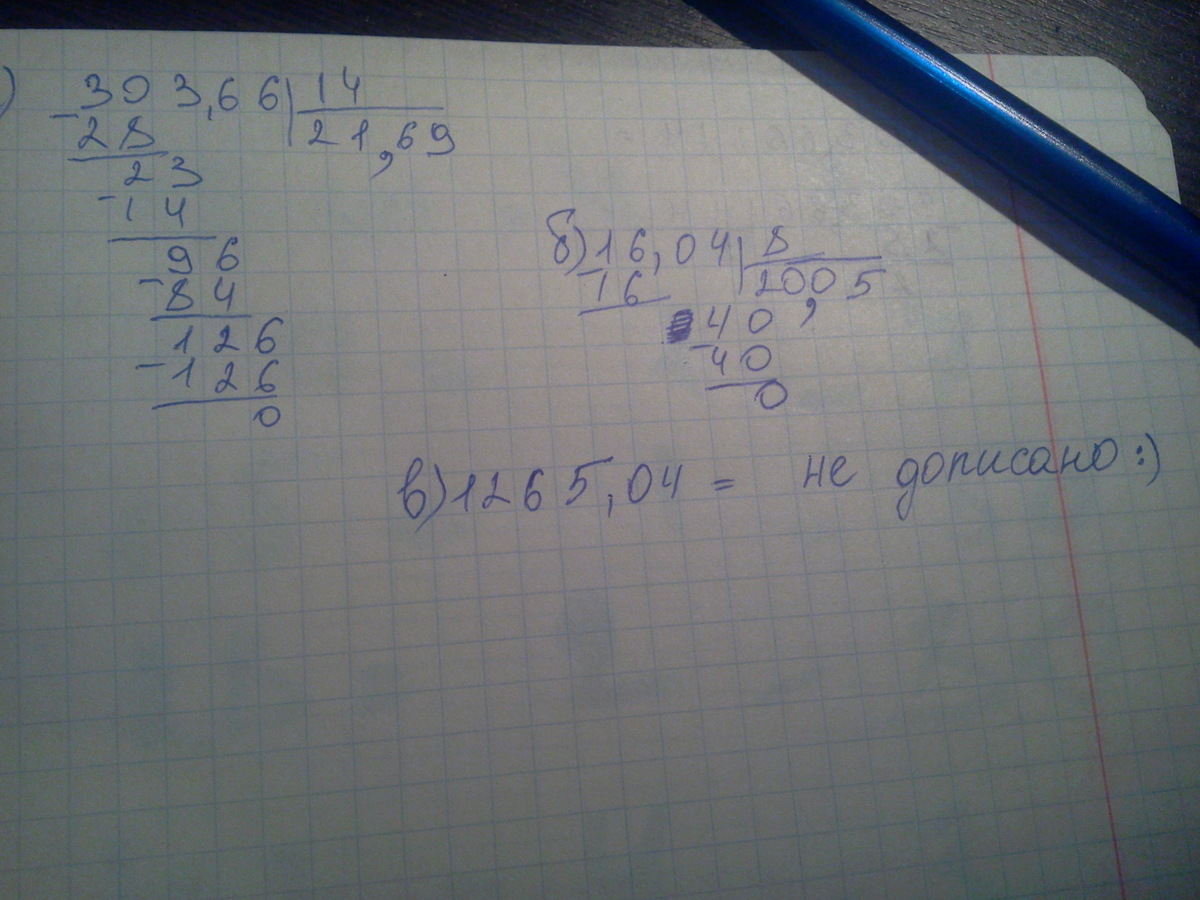 ) 303,66 | 14
- 28 | 21,69
23
- 14
96
- 84
126
- 126
0
б) 16,04 | 8
- 16 | 200,5
40
- 40
0
в) 1265,04 = не дописано :)